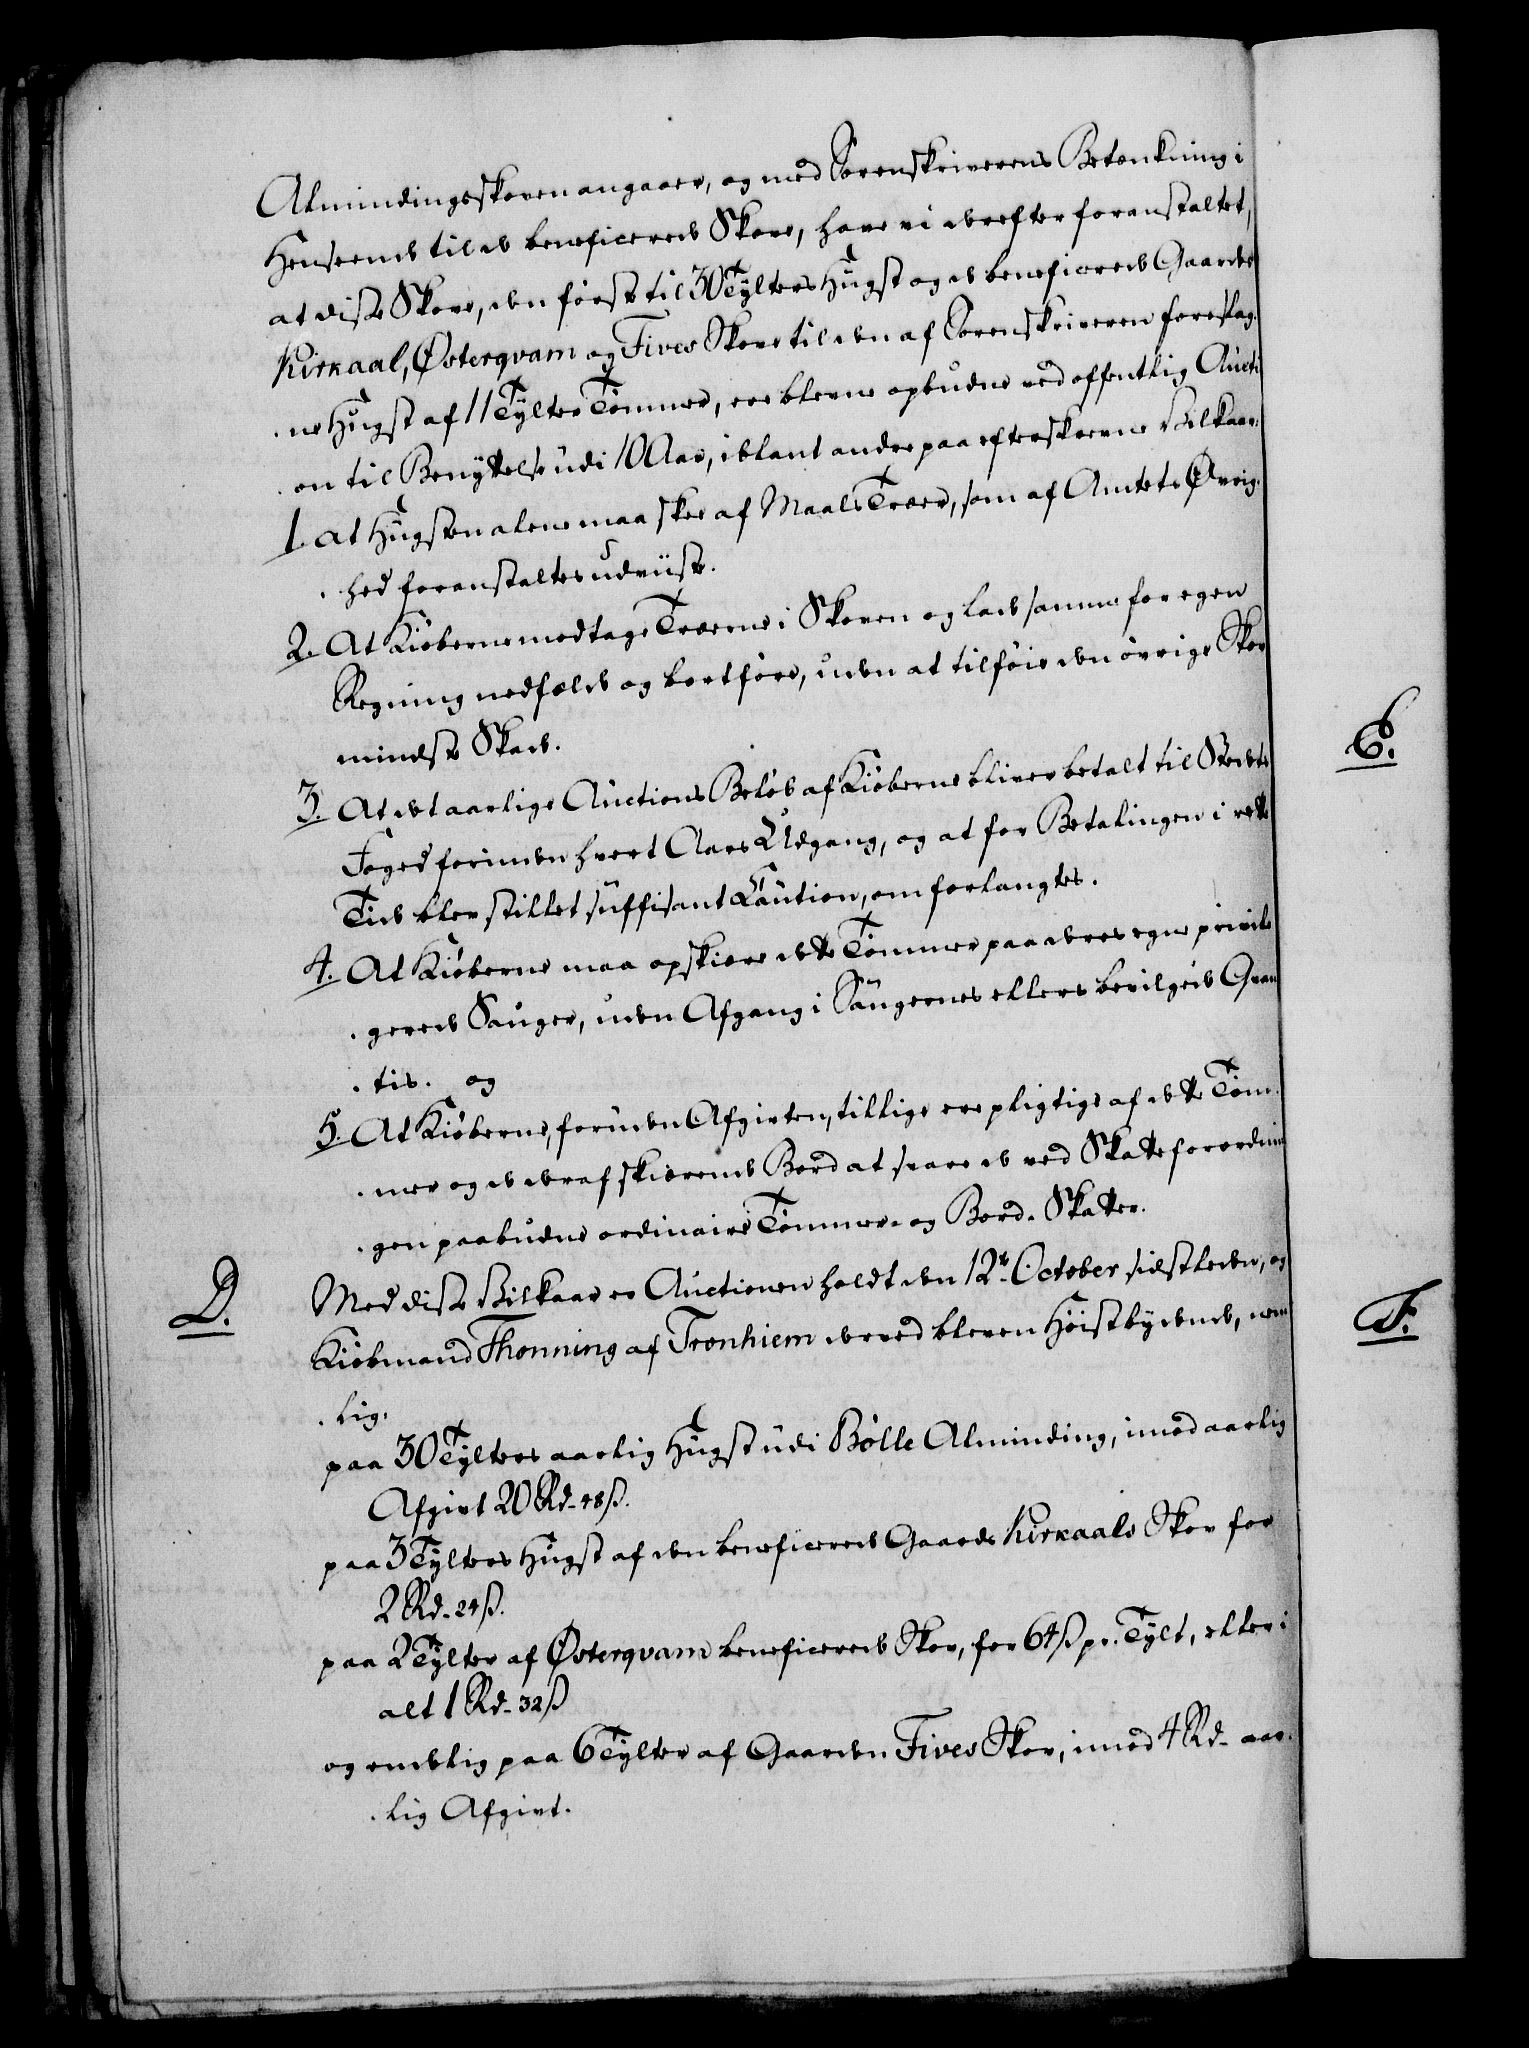 Almindingsskoven angaaer, og med Sorenskriverens Betænkning i
Henseende til de beneficerede Skove, have vi derefter foranstaltet,
at disse Skove, den første til 30 Tylters Hugst og de beneficerede Gaardes
Kirkaal, Østerqvam og Fives Skove til den af Sorenskriveren foreslag-
ne Hugst af 11 Tylter Tømmer, ere blevne opbudne ved offentlig Aucti
on til Benyttelse udi 10 Aar, iblant andre paa efterskrevne Vilkaar:
1. at Hugsten alene maa skee af Maals Træer, som af Amtets Øvrig-
hed foranstaltes udviist.
2. At Kiøberne modtage Træerne i Skoven og lade samme for egen
Regning nedfælde og bortføre, uden at tilføie den øvrige Skov
mindste Skade.
3. At det aarlige Auctions Beløb af Kiøberne bliver betalt til Stedets
Foged forinden hvert Aars Udgang, og at for Betalingen i rette
Tid blev stillet suffisant Caution, om forlangtes.
4. At Kiøberne maa opskiære dette Tømmer paa deres egne privile
gerede Sauger, uden Afgang i Saugernes ellers bevilgede Qvan
tis. og
5. At Kiøberne, foruden Afgivten, tillige ere pligtige af dette Tøm-
mer og de deraf skiærende Bord at svare de ved Skatteforordnin
gen paabudne ordinaire Tømmer- og Bord-Skatter.
D.
Med disse Vilkaar er Auctionen holdt den 12te October sidstleden, og
Kiøbmand Thonning af Tronhiem derved bleven Høistbydende, nem
lig.
paa 30 Tylters aarlig Hugst udi Bølle Alminding, imod aarlig
Afgivt 20 Rd. 48 ß.
paa 3 Tylters Hugst af den beneficerede Gaards Kirkaals Skov for
2 Rd. 24 ß.
paa 2 Tylter af Østerqvam beneficerede Skov, for 64 ß pr. Tylt, eller i
alt 1 Rd. 32 ß
og endelig paa 6 Tylter af Gaarden Fives Skov, imod 4 Rd. aar-
lig Afgivt.
E.
F.